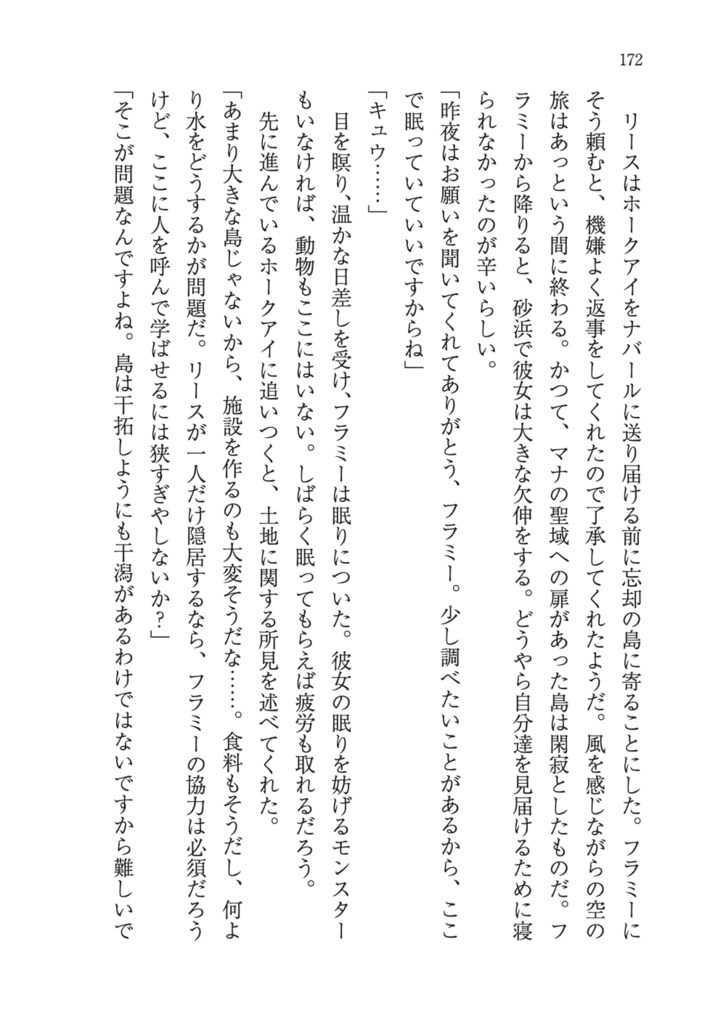 172
　リースはホークアイをナバールに送り届ける前に忘却の島に寄ることにした。フラミーに
そう頼むと、機嫌よく返事をしてくれたので了承してくれたようだ。風を感じながらの空の
旅はあっという間に終わる。かつて、マナの聖域への扉があった島は閑寂としたものだ。フ
ラミーから降りると、砂浜で彼女は大きな欠伸をする。どうやら自分達を見届けるために寝
られなかったのが辛いらしい。
「昨夜はお願いを聞いてくれてありがとう、フラミー。少し調べたいことがあるから、ここ
で眠っていていいですからね」
「キュウ……」
　目を瞑り、温かな日差しを受け、フラミーは眠りについた。彼女の眠りを妨げるモンスター
もいなければ、動物もここにはいない。しばらく眠ってもらえば疲労も取れるだろう。
　先に進んでいるホークアイに追いつくと、土地に関する所見を述べてくれた。
「あまり大きな島じゃないから、施設を作るのも大変そうだな……。食料もそうだし、何よ
り水をどうするかが問題だ。リースが一人だけ隠居するなら、フラミーの協力は必須だろう
けど、ここに人を呼んで学ばせるには狭すぎやしないか？」
「そこが問題なんですよね。島は干拓しようにも干潟があるわけではないですから難しいで